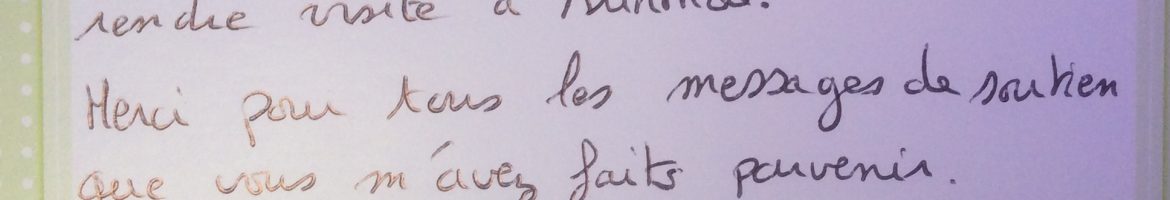 rendre visite à
Merci pour tous les messages de soutien
que vous m'avez faits parvenir.